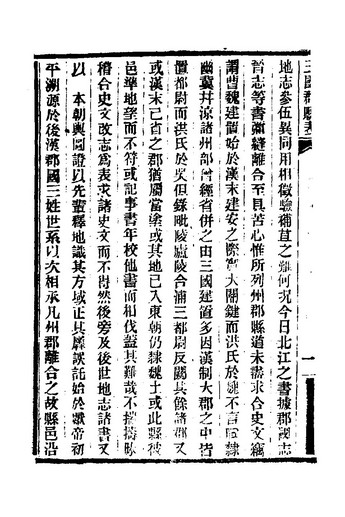 三國郡縣表
地志參伍異同用相徵驗補苴之難何況今日北江之書據郡國志
晉志等書彌縫離合至具苦心惟所列州郡縣道未盡求合史文竊
謂曹魏建置始於漢末建安之際實大關鍵而洪氏於魏不言司隸
幽冀并涼諸州郡曾經省併之由三國建置多因漢制大郡之中皆
置都尉而洪氏於吳但錄毗陵廬陵合浦三都尉反闕其餘諸郡又
或漢末已省之郡猶屬當塗或其地已入東朝仍隸魏土或此縣彼
邑準地望而不符或記事書年校他書而相伐蓋其難哉不揣檮昧
稽合史文改志為表求諸史文而不得然後旁及後世地志諸書又
以 本朝輿圖證以先輩釋地識其方域正其謬誤託始於獻帝初
平溯源於後漢郡國三姓世系以次相承凡州郡離合之故縣邑沿